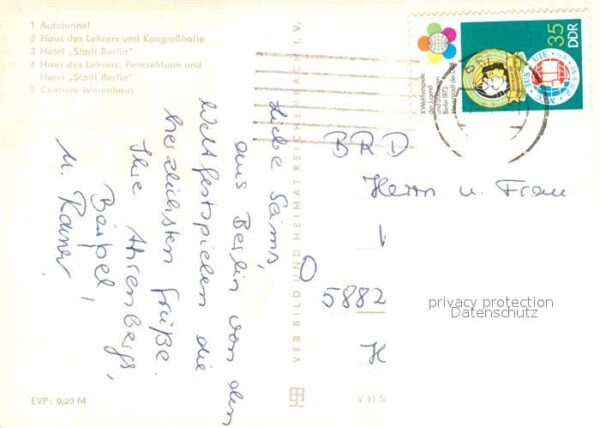 1 Autotunnel
2 Haus des Lehrers und Kongreßhalle
3 Hotel „Stadt Berlin"
4 Haus des Lehrers, Fernsehturm und
Hotel „Stadt Berlin"
5 Centrum-Warenhaus
X. Weltfestspiele
der Jugend
und Studenten
Berlin 1973
Hauptstadt der DDR
35
DDR
IUS
UIE
VEB BILD UND HEIMAT REICHENBACH I. V.
Liebe
aus Berlin von den
Weltfestspielen die
herzlichsten Grüße.
Ihre Ahrenbergs,
Bärbel,
u. Rainer
BRD
Herrn u. Frau
5882
H
privacy protection
Datenschutz
EVP: 0,20 M
V 11